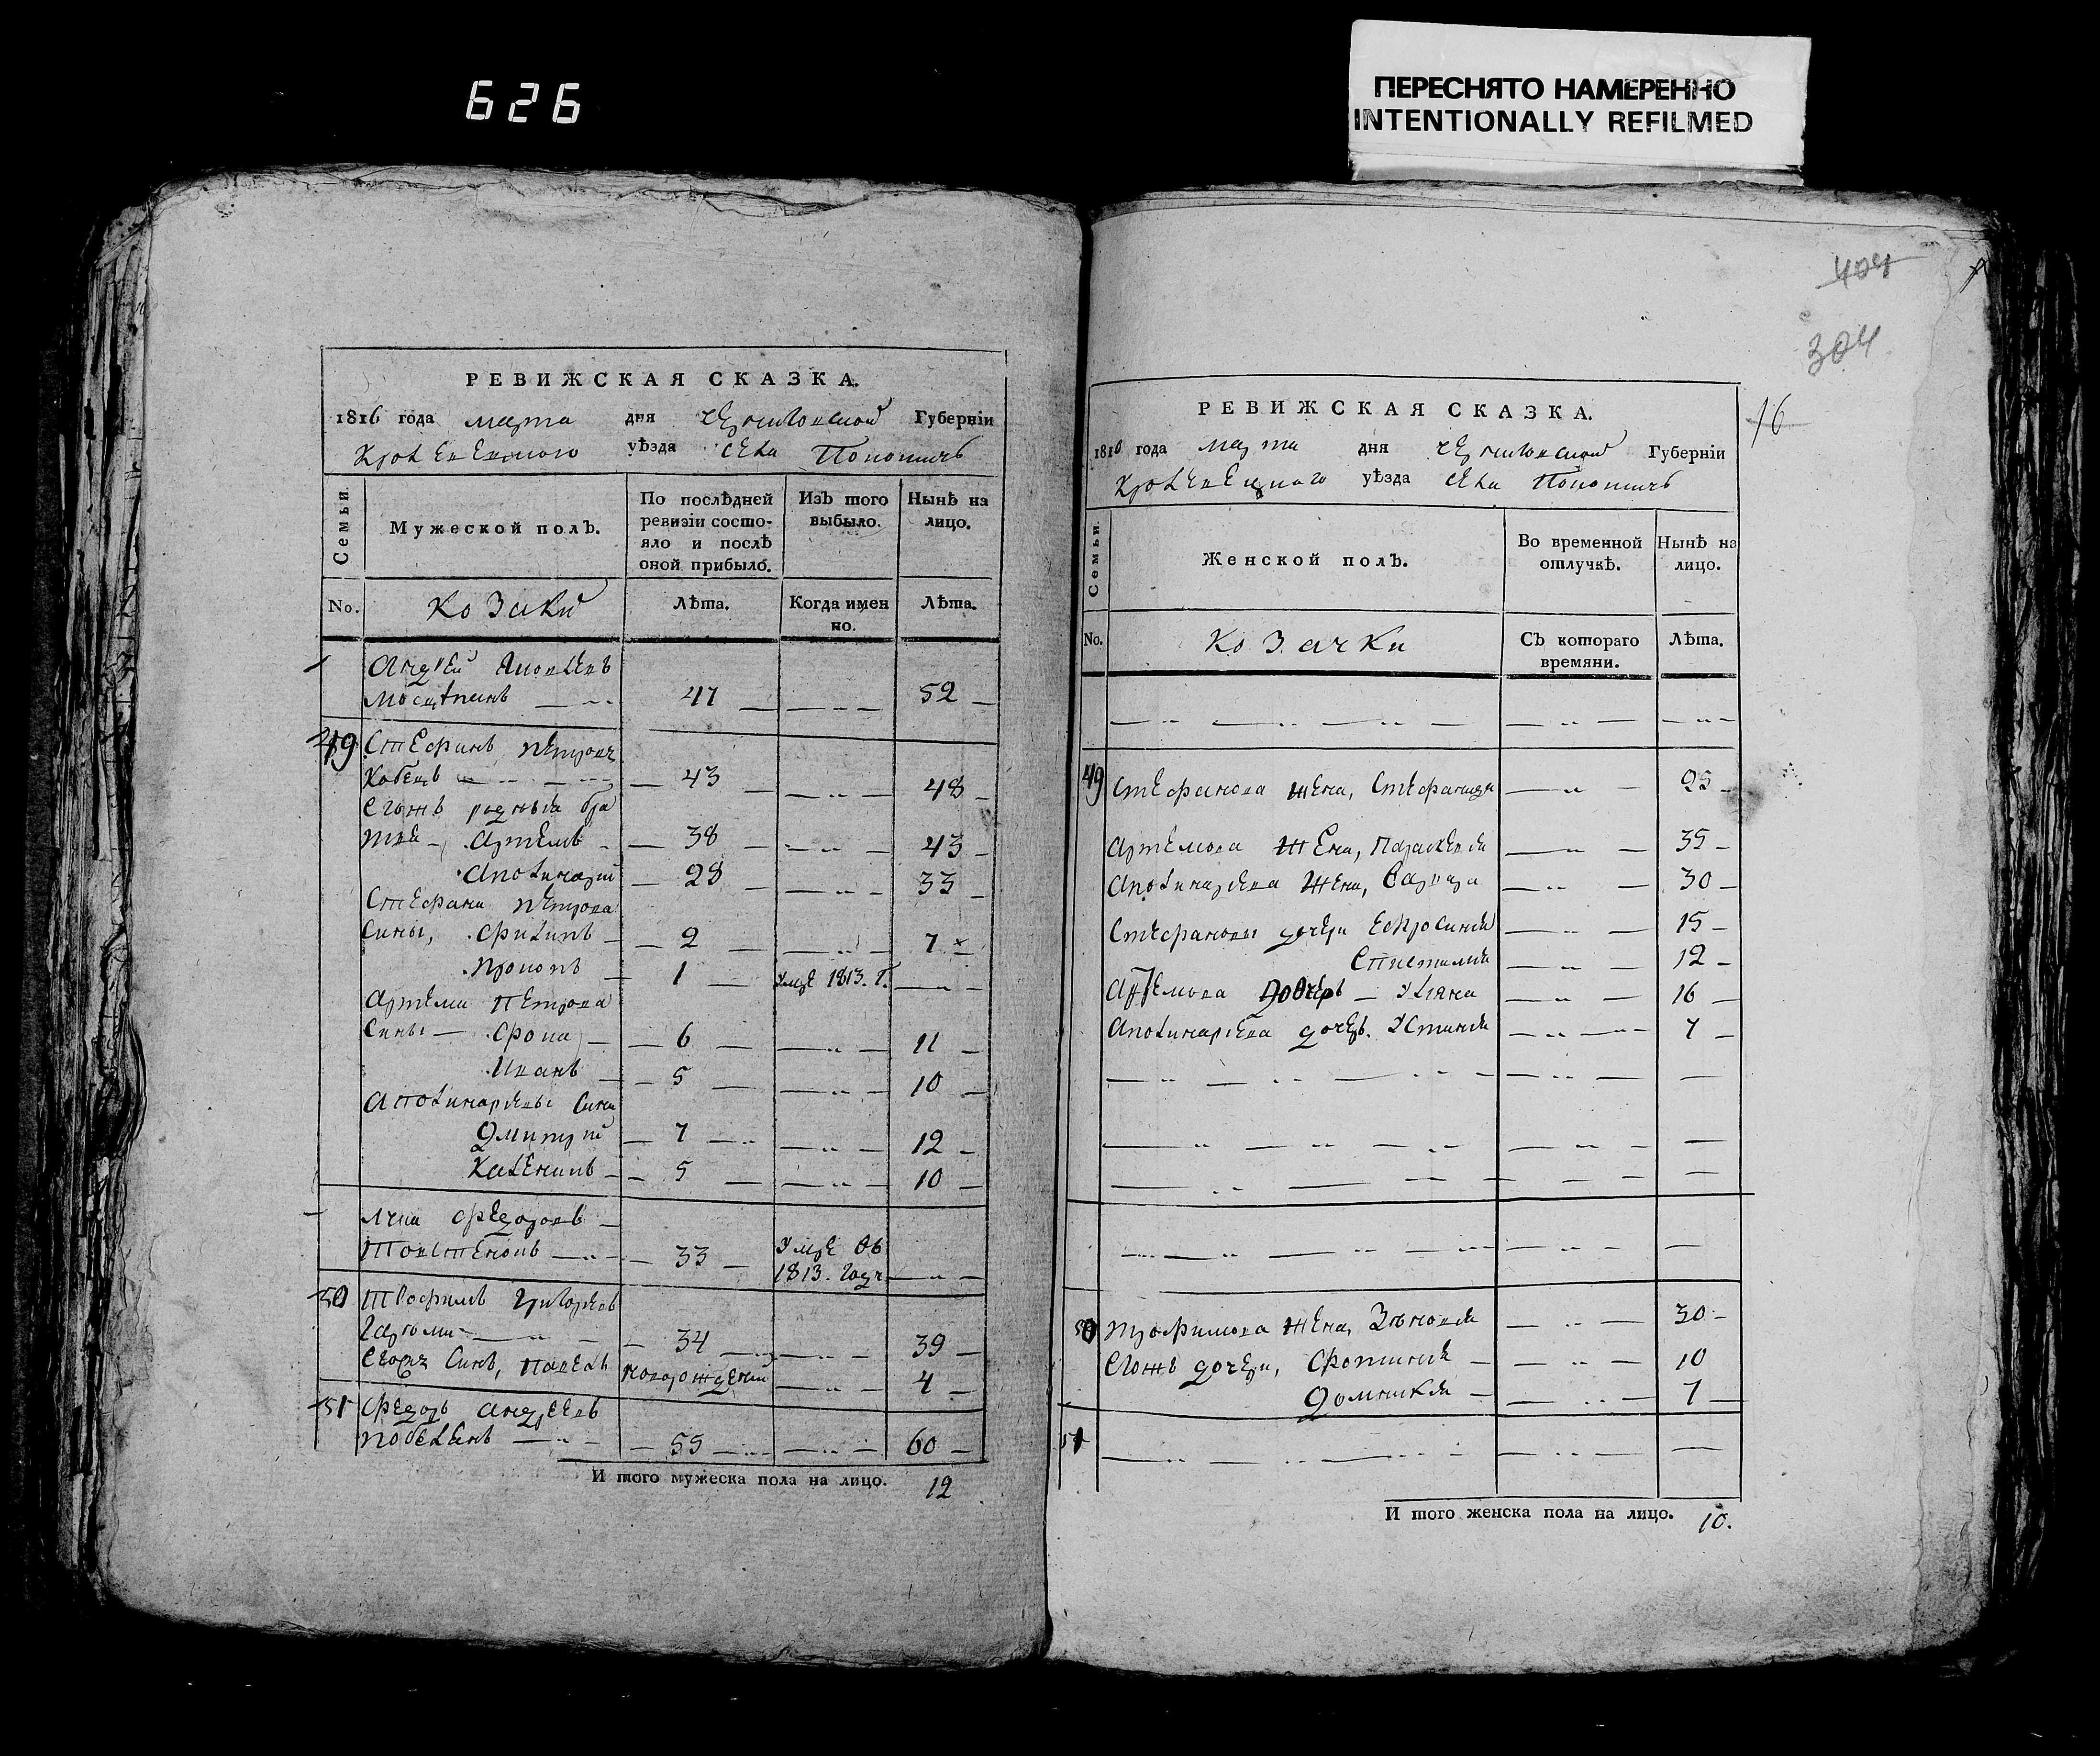 626
ПЕРЕСНЯТО НАМЕРЕННО
INTENTIONALLY REFILMED
РЕВИЖСКАЯ СКАЗКА.
1816 года марта дня черниговской Губернїи
Кролевецкого уѣзда села Попонич
Семьи.
Мужеской полъ.
По послѣдней
ревизїи состо-
яло и послѣ
оной прибыло.
Изъ того
выбыло.
Нынѣ на
лицо.
No. Козаки Лѣта. Когда имен
но.
Лѣта.
Андрей Яковлевъ
47 52
49 Стефанъ Петровъ
Кобецъ 43 48
Егожъ родныя бра
тья Артемъ 38 43
Аполинарий 28 33
Стефана Петрова
Сины, Филипъ 2 7
Прокопъ 1 умре 1813. г.
Артема Петрова
Сины Фока 6 11
Иванъ 5 10
Аполинариевы Сини
Дмитрий 7 12
Каленикъ 5 10
Лука Федоровъ
Товстенокъ 33 Умре въ
1813. году
50 Трофимъ Григориев
34 39
Егожъ Синъ, Павелъ новорожденний 4
51 Федоръ Андреевъ
55 60
И того мужеска пола на лицо. 12
404
304
16
РЕВИЖСКАЯ СКАЗКА.
1816 года марта дня черниговской Губернїи
Кролевецкого уѣзда села Попонич
Семьи.
Женской полъ.
Во временной
отлучкѣ.
Нынѣ на
лицо.
No. Козачки Съ котораго
времяни.
Лѣта.
49 Стефанова жена, Стефанида 25
Артемова жена, Параскевия 35
Аполинариева жена, Варвара 30
Стефановы дочери Ефросиния 15
12
Артемова Дочеръ Уляна 16
Аполинариева дочеръ. Устиния 7
50 Трофимова жена, Зѣновия 30
Егожъ дочери, Фотиния 10
Домникия 7
51
И того женска пола на лицо. 10.